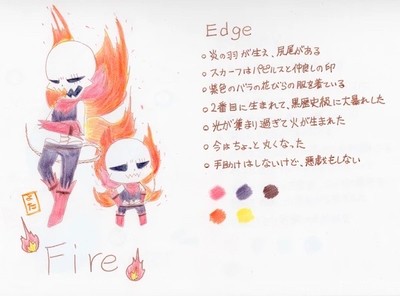 Edge
○炎の羽が生え、尻尾がある
○スカーフはパピルスと仲良しの印
○紫色のバラの花びらの服を着ている
○2番目に生まれて、黒歴史級に大暴れした
○光が集まり過ぎて火が生まれた
○今はちょっと丸くなった
○手助けはしないけど、悪戯もしない
Fire